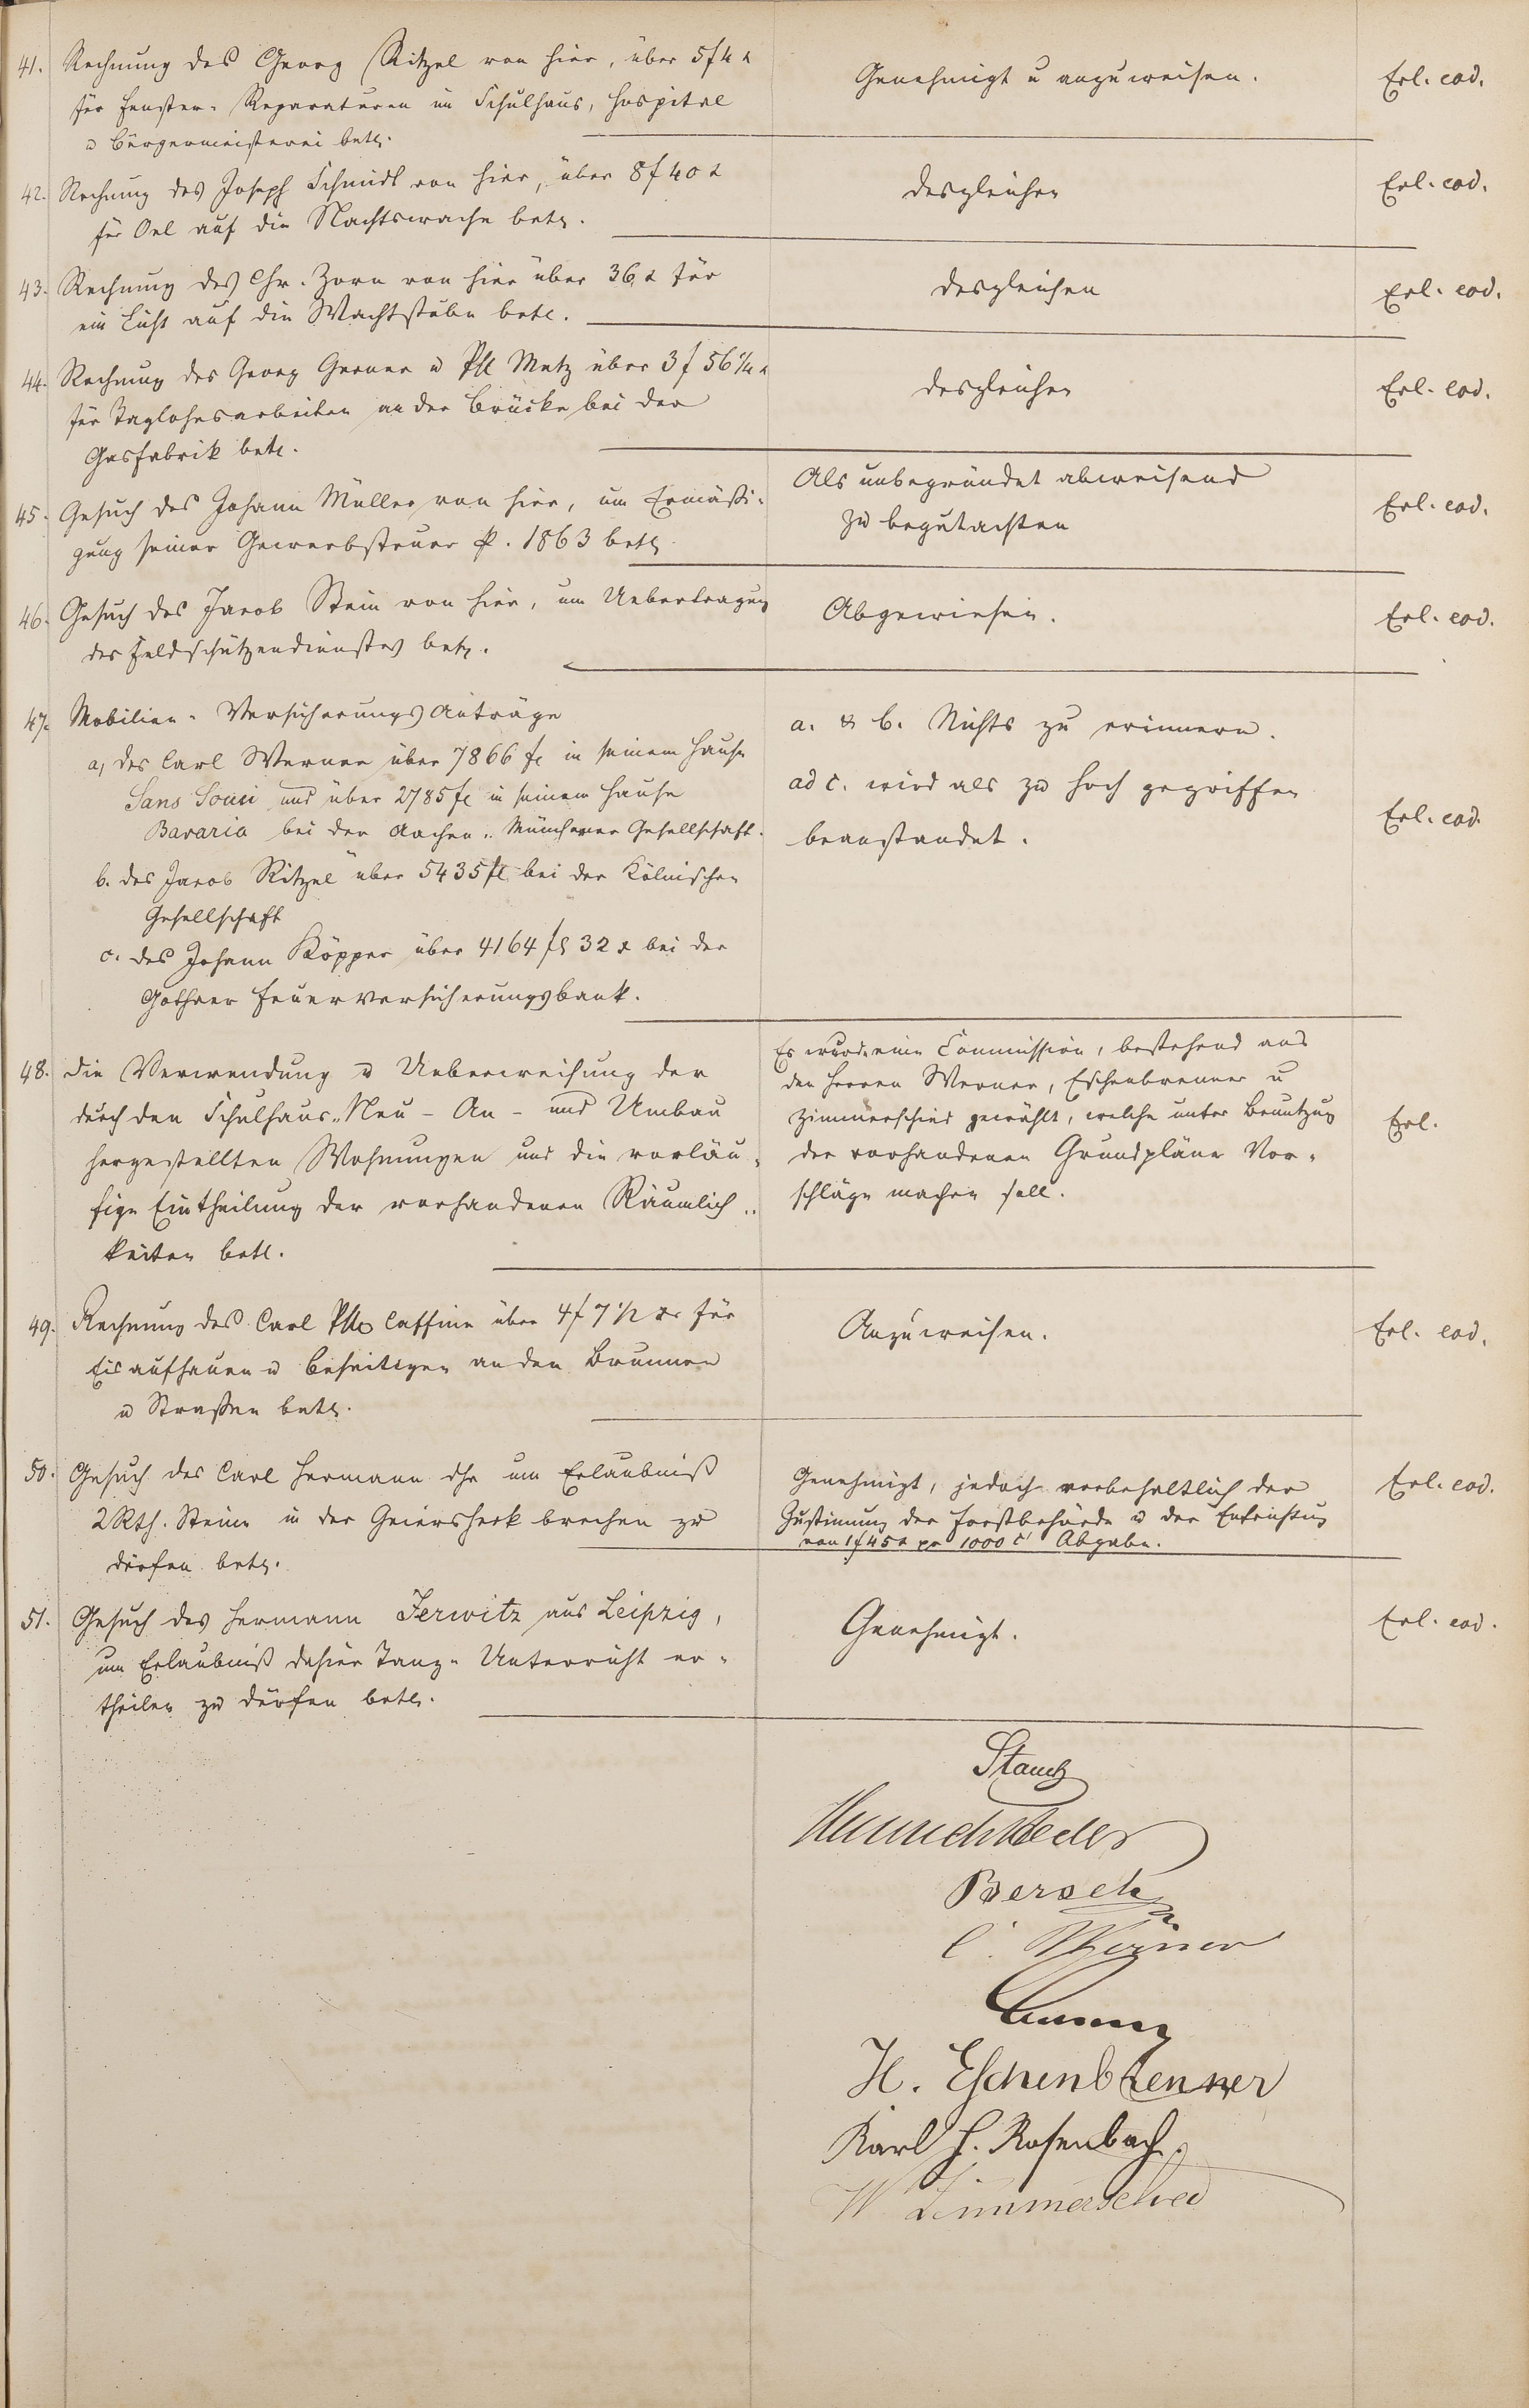 41. Rechnung des Georg Ritzel von hier, über 5 f 4 x
für Fenster-Reparaturen im Schulhaus, Hospital
u Bürgermeisterei betr.
Genehmigt u anzuweisen.
Erl. eod.
42. Rechnung des Joseph Schmidt von hier, über 8 f 40 x
für Oel auf die Nachtwache betr.
desgleichen
Erl. eod.
43. Rechnung des Chr. Zorn von hier über 36 x für
ein Licht auf die Wachtstube betr.
desgleichen
Erl. eod.
44. Rechnung des Georg Gerner u Ph Metz über 3 f 56 1/4 x
für Taglohnsarbeiten an der Brücke bei der
Gasfabrik betr.
desgleichen
Erl. eod.
45. Gesuch des Johann Müller von hier, um Ermäßi-
gung seiner Gewerbsteuer p. 1863 betr
Als unbegründet abweisend
zu begutachten
Erl. eod.
46. Gesuch des Jacob Stein von hier, um Uebertragung
des Feldschützendienstes betr.
Abgewiesen.
Erl. eod.
47. Mobilien-Versicherungs Anträge
a, des Carl Werner über 7866 fl in seinem Hause
Sans Souci und über 2785 fl in seinem Hause
Bavaria bei der Aachen-Münchener Gesellschaft.
b. des Jacob Ritzel über 5435 fl bei der Kölnischen
Gesellschaft
c. des Johann Köpper über 4164 fl 32 x bei der
Gothaer Feuerversicherungsbank.
a. & b. Nichts zu erinnern.
ad c. wird als zu hoch gegriffen
beanstandet.
Erl. eod.
48. die Verwendung u Ueberweisung der
durch den Schulhaus-Neu- An- und Umbau
hergestellten Wohnungen und die vorläu-
fige Eintheilung der vorhandenen Räumlich-
keiten betr.
Es wurde eine Commission, bestehend aus
den Herren Werner, Eschenbrenner u
Zimmerschied gewählt, welche unter Benutzung
der vorhandenen Grundpläne Vor-
schläge machen soll.
Erl.
49. Rechnung des Carl Ph Caffine über 4 f 7 1/2 xr für
Eis aufhauen u beseitigen an den Brunnen
u Straßen betr.
Anzuweisen.
Erl. eod.
50. Gesuch des Carl Hermann dhr um Erlaubniß
2 Rth. Steine in der Geiersheck brechen zu
dürfen betr.
Genehmigt, jedoch vorbehaltlich der
Zustimung der Forstbehörde u der Entrichtung
von 1 f 45 x pr 1000 c' Abgabe.
Erl. eod.
51. Gesuch des Hermann Jerwitz aus Leipzig,
um Erlaubniß dahier Tanz-Unterricht er-
theilen zu dürfen betr.
Genehmigt.
Erl. eod.
Bersch
C. Werner
H. Eschenbrenner
Karl H. Rosenbach
W Zimmerschied